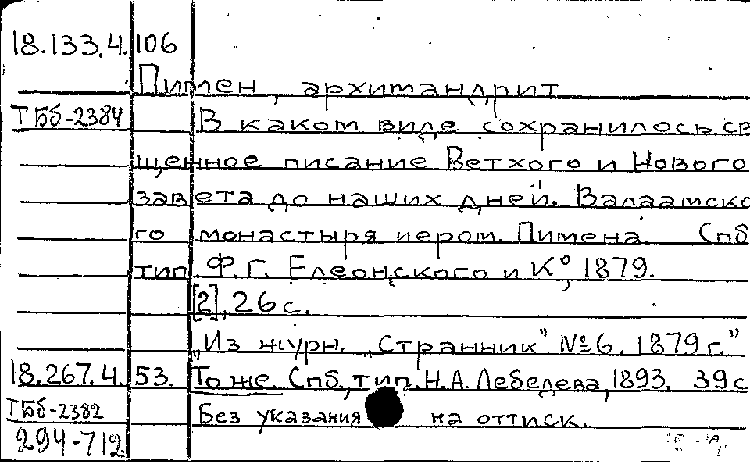 18.133.4.106
Пимен, архимандрит
ТБб-2384 В каком виде сохранилось св
щенное писание Ветхого и Нового
завета до наших дней. Валаамско
го монастыря иером. Пимена. Спб
тип. Ф.Г. Елеонского и К°, 1879.
[2], 26 с.
„Из журн. „Странник" № 6. 1879 г."
18.267.4.53. То же. Спб, тип. Н.А. Лебедева, 1893. 39 с
ТБб-2382 Без указания на оттиск.
294-712